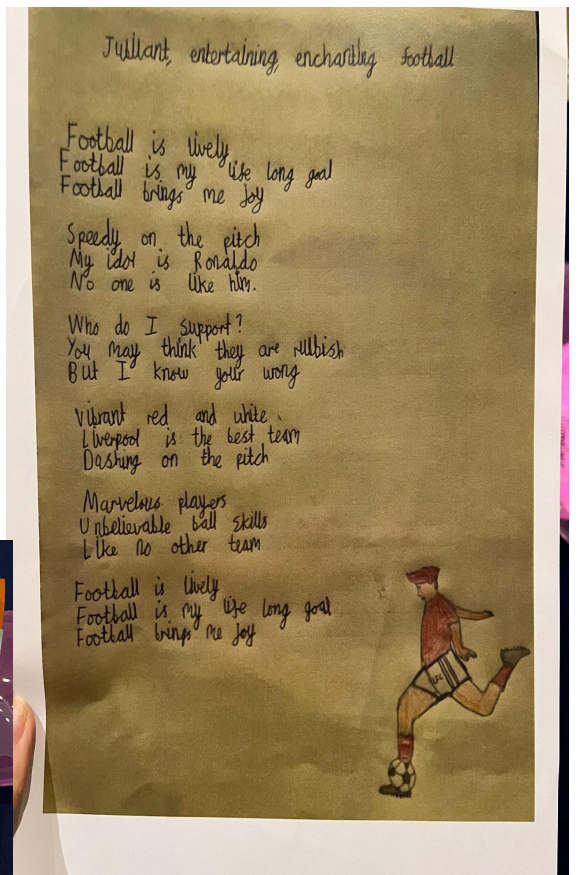 Jubilant, entertaining, enchanting football
Football is lively
Football is my life long goal
Football brings me joy
Speedy on the pitch
My idol is Ronaldo
No one is like him.
Who do I support?
You may think they are rubbish
But I know your wong
Vibrant red and white
Liverpool is the best team
Dashing on the pitch
Marvelous players
Unbelievable ball skills
Like no other team
Football is lively
Football is my life long goal
Football brings me joy
LFC